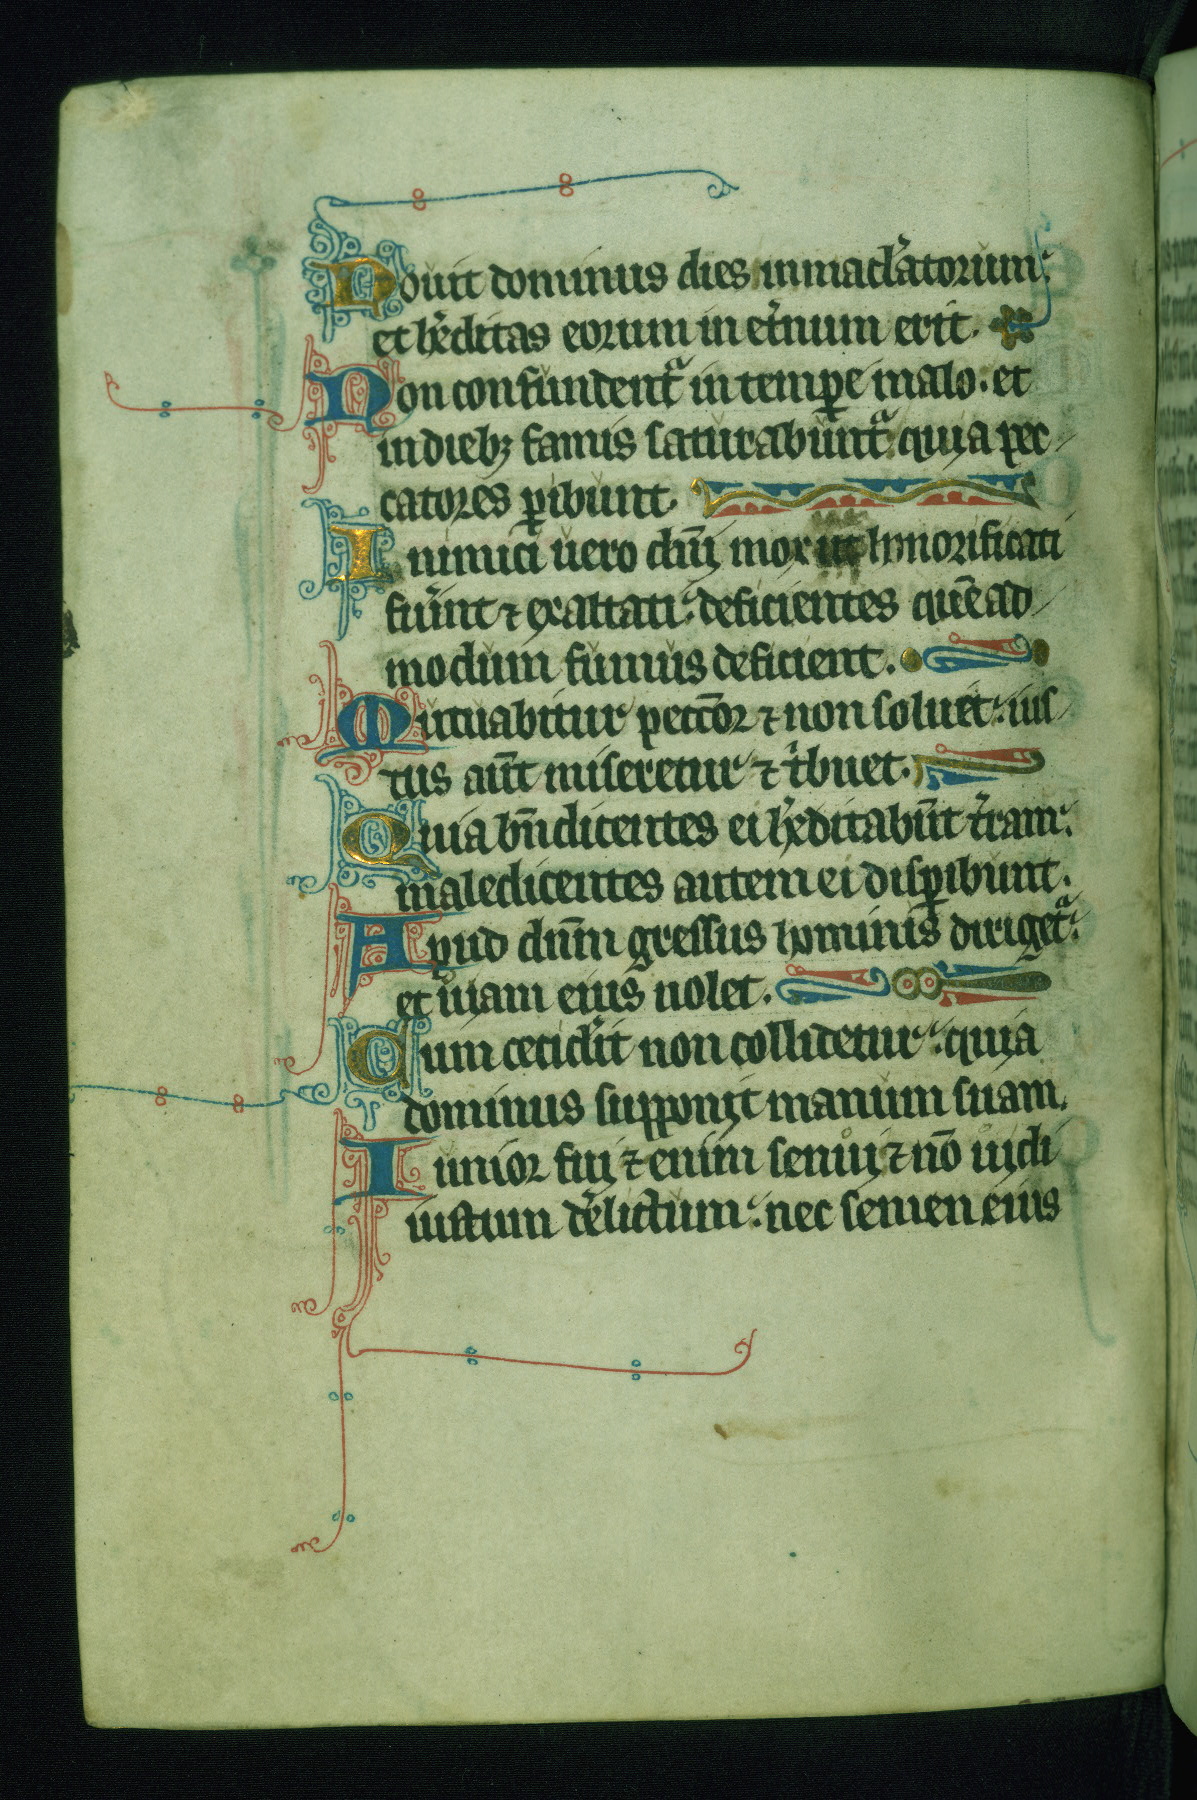 Nouit dominus dies inmacl̕atorum:
et h̕editas eorum in et̕num erit.
Non confundentᷓ in temp̱e malo. et
in dieb; famis saturabuntᷓ quia pec
catores p̱ibunt.
Inimici uero dn̄i mox ut honorificati
fu̕int ⁊ exaltati: deficientes quē ad
modum fumus deficient.
Mutuabitur pecc̄or ⁊ non soluet: ius
tus aūt miseretur ⁊ t̕buet.
Quia bn̄dicentes ei h̕editabūt t̕ram:
maledicentes autem ei disp̱ibunt.
Apud dn̄m gressus hominis dirigetᷓ:
et uiam eius uolet.
Cum cecid̕it non collidetur: quia
dominus supponit manum suam.
Iunior fui ⁊ enim senui ⁊ nō uidi
iustum d̕elictum: nec semen eius